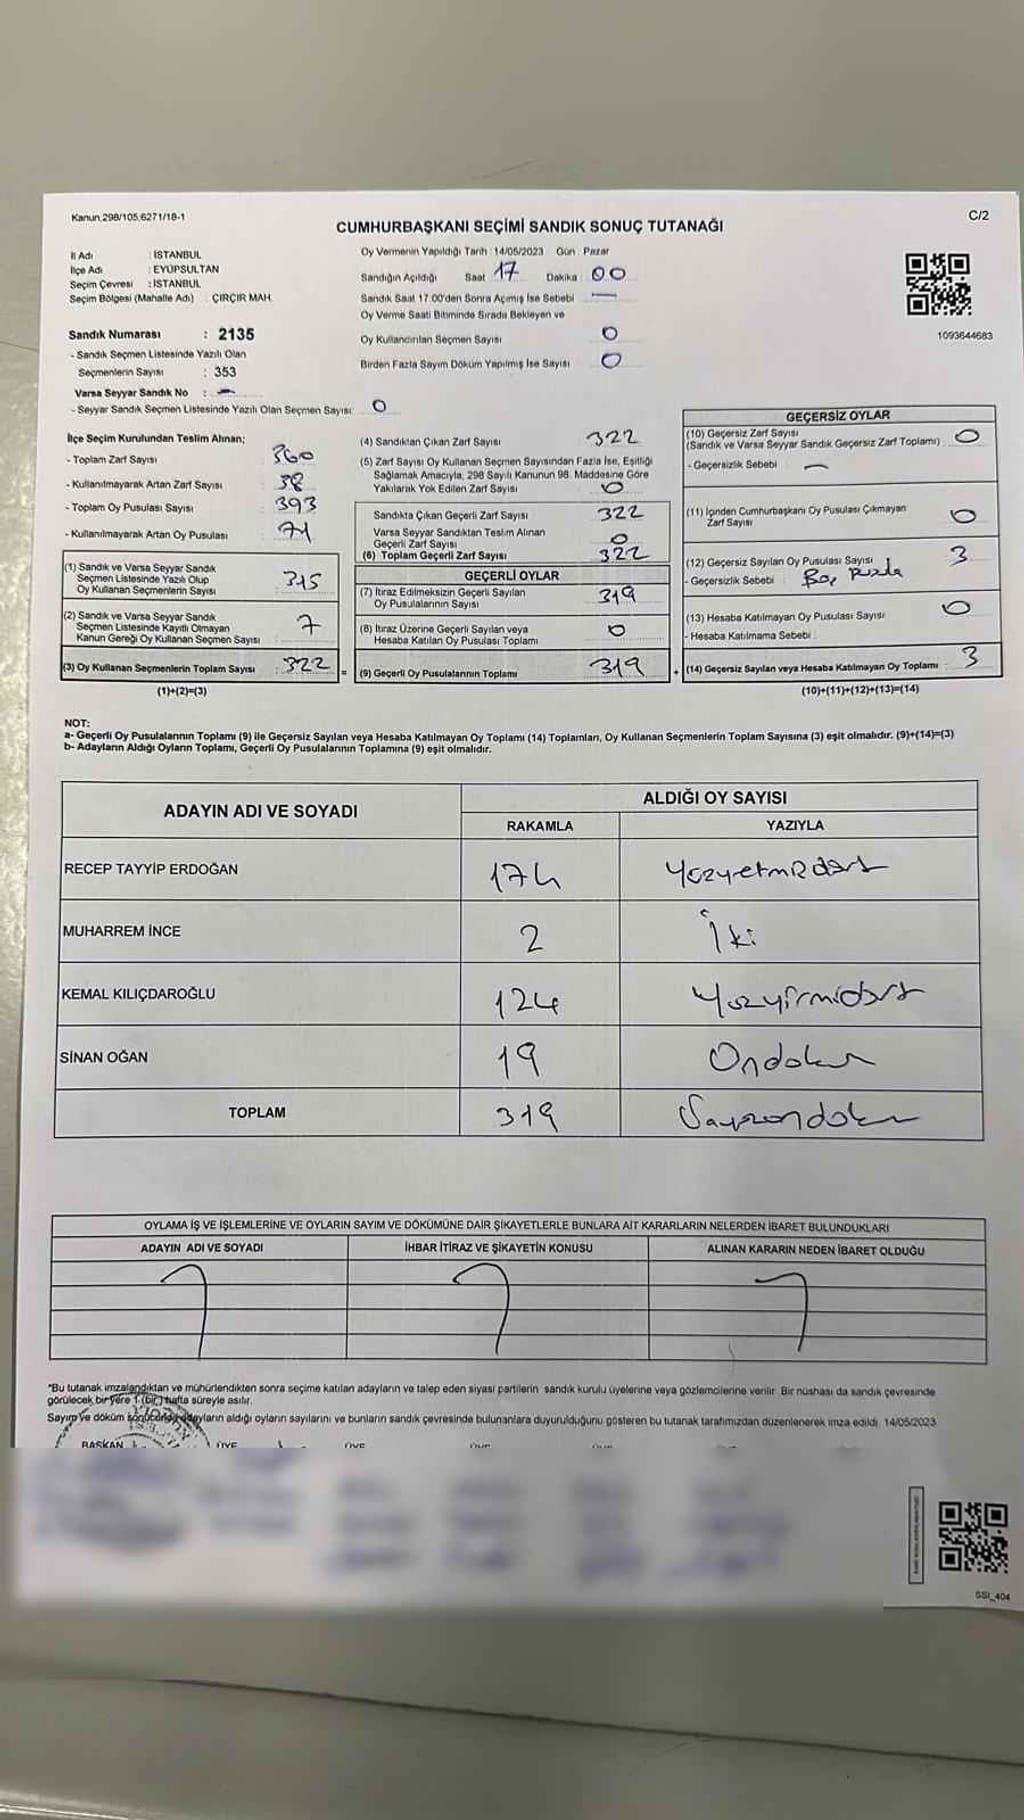 Kanun,298/105,6271/18-1
C/2
CUMHURBAŞKANI SEÇİMİ SANDIK SONUÇ TUTANAĞI
İl Adı : İSTANBUL
İlçe Adı : EYÜPSULTAN
Seçim Çevresi : İSTANBUL
Seçim Bölgesi (Mahalle Adı) : ÇIRÇIR MAH.
Oy Vermenin Yapıldığı Tarih : 14/05/2023 Gün : Pazar
Sandığın Açıldığı Saat 17 Dakika : 00
Sandık Saat 17.00'den Sonra Açmış İse Sebebi —
Oy Verme Saati Bitiminde Sırada Bekleyen ve
Oy Kullandırılan Seçmen Sayısı 0
Birden Fazla Sayım Döküm Yapılmış İse Sayısı 0
1093644683
Sandık Numarası : 2135
- Sandık Seçmen Listesinde Yazılı Olan
Seçmenlerin Sayısı : 353
Varsa Seyyar Sandık No : —
- Seyyar Sandık Seçmen Listesinde Yazılı Olan Seçmen Sayısı: 0
İlçe Seçim Kurulundan Teslim Alınan;
- Toplam Zarf Sayısı 360
- Kullanılmayarak Artan Zarf Sayısı : 38
- Toplam Oy Pusulası Sayısı : 393
- Kullanılmayarak Artan Oy Pusulası : 71
(1) Sandık ve Varsa Seyyar Sandık
Seçmen Listesinde Yazılı Olup
Oy Kullanan Seçmenlerin Sayısı : 315
(2) Sandık ve Varsa Seyyar Sandık
Seçmen Listesinde Kayıtlı Olmayan
Kanun Gereği Oy Kullanan Seçmen Sayısı : 7
(3) Oy Kullanan Seçmenlerin Toplam Sayısı : 322 =
(1)+(2)=(3)
(4) Sandıktan Çıkan Zarf Sayısı 322
(5) Zarf Sayısı Oy Kullanan Seçmen Sayısından Fazla İse, Eşitliği
Sağlamak Amacıyla, 298 Sayılı Kanunun 98. Maddesine Göre
Yakılarak Yok Edilen Zarf Sayısı 0
Sandıkta Çıkan Geçerli Zarf Sayısı 322
Varsa Seyyar Sandıktan Teslim Alınan
Geçerli Zarf Sayısı 0
(6) Toplam Geçerli Zarf Sayısı 322
GEÇERLİ OYLAR
(7) İtiraz Edilmeksizin Geçerli Sayılan
Oy Pusulalarının Sayısı 319
(8) İtiraz Üzerine Geçerli Sayılan veya
Hesaba Katılan Oy Pusulası Toplamı 0
(9) Geçerli Oy Pusulalarının Toplamı 319 +
GEÇERSİZ OYLAR
(10) Geçersiz Zarf Sayısı
(Sandık ve Varsa Seyyar Sandık Geçersiz Zarf Toplamı) 0
- Geçersizlik Sebebi : —
(11) İçinden Cumhurbaşkanı Oy Pusulası Çıkmayan
Zarf Sayısı 0
(12) Geçersiz Sayılan Oy Pusulası Sayısı 3
- Geçersizlik Sebebi :
(13) Hesaba Katılmayan Oy Pusulası Sayısı 0
- Hesaba Katılmama Sebebi :
(14) Geçersiz Sayılan veya Hesaba Katılmayan Oy Toplamı : 3
(10)+(11)+(12)+(13)=(14)
NOT:
a- Geçerli Oy Pusulalarının Toplamı (9) ile Geçersiz Sayılan veya Hesaba Katılmayan Oy Toplamı (14) Toplamları, Oy Kullanan Seçmenlerin Toplam Sayısına (3) eşit olmalıdır. (9)+(14)=(3)
b- Adayların Aldığı Oyların Toplamı, Geçerli Oy Pusulalarının Toplamına (9) eşit olmalıdır.
ADAYIN ADI VE SOYADI
ALDIĞI OY SAYISI
RAKAMLA YAZIYLA
RECEP TAYYİP ERDOĞAN 174 Yüzyetmişdört
MUHARREM İNCE 2 İki
KEMAL KILIÇDAROĞLU 124 Yüzyirmidört
SİNAN OĞAN 19 Ondokuz
TOPLAM 319 Üçyüzondokuz
OYLAMA İŞ VE İŞLEMLERİNE VE OYLARIN SAYIM VE DÖKÜMÜNE DAİR ŞİKAYETLERLE BUNLARA AİT KARARLARIN NELERDEN İBARET BULUNDUKLARI
ADAYIN ADI VE SOYADI İHBAR İTİRAZ VE ŞİKAYETİN KONUSU ALINAN KARARIN NEDEN İBARET OLDUĞU
*Bu tutanak imzalandıktan ve mühürlendikten sonra seçime katılan adayların ve talep eden siyasi partilerin sandık kurulu üyelerine veya gözlemcilerine verilir. Bir nüshası da sandık çevresinde
görülecek bir yere 1 (bir) hafta süreyle asılır.
Sayım ve döküm sonucunda adayların aldığı oyların sayılarını ve bunların sandık çevresinde bulunanlara duyurulduğunu gösteren bu tutanak tarafımızdan düzenlenerek imza edildi. 14/05/2023
BAŞKAN ÜYE ÜYE ÜYE
SSI_404